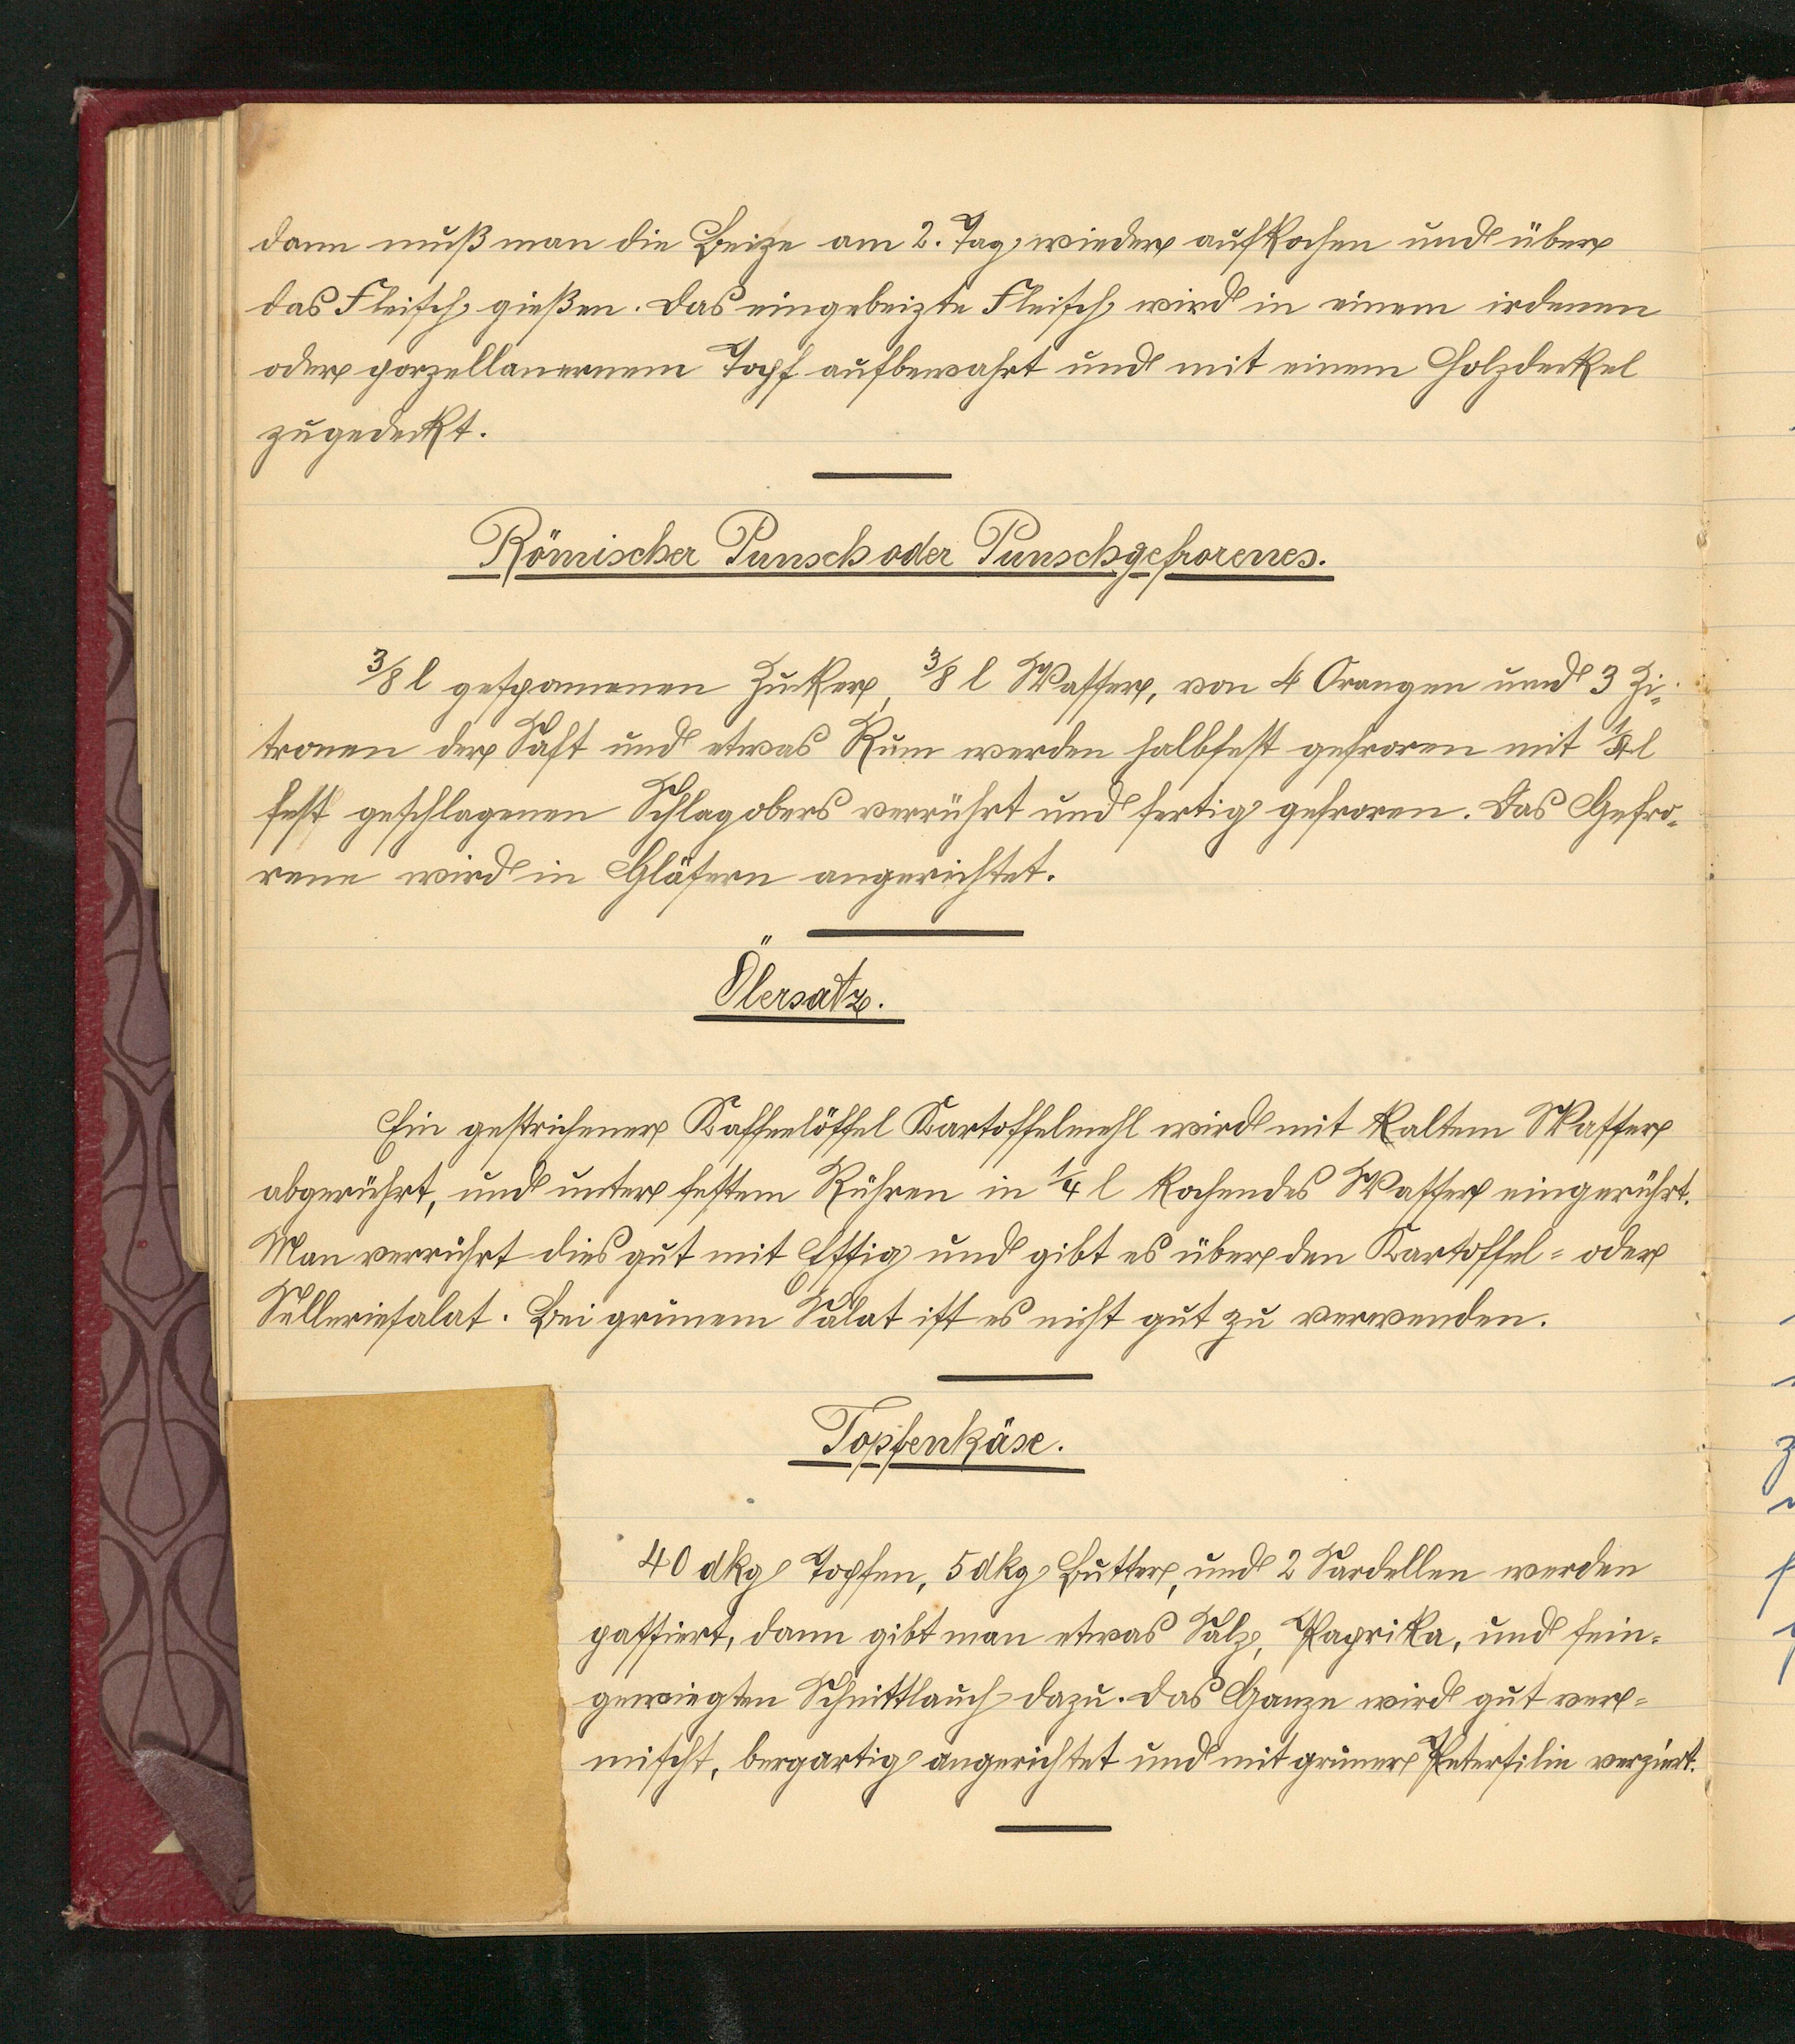 dann muß man die Beize am 2. Tag wieder aufkochen und über
das Fleisch gießen. Das eingebeizte Fleisch wird in einem irdenen
oder porzellanernem Topf aufbewahrt und mit einem Holzdeckel
zugedeckt.
Römischer Punsch oder Punschgefrorenes.
3/8 l gesponnenen Zucker, 3/8 l Wasser, von 4 Orangen und 3 Zi-
tronen der Saft und etwas Rum werden halbfest gefroren mit 1/4 l
fest geschlagenen Schlagobers verrührt und fertig gefroren. Das Gefro-
rene wird in Gläsern angerichtet.
Ölersatz.
Ein gestrichener Kaffeelöffel Kartoffelmehl wird mit kaltem Wasser
abgerührt, und unter festem Rühren in 1/4 l kochendes Wasser eingerührt.
Man verrührt dies gut mit Essig und gibt es über den Kartoffel- oder
Selleriesalat. Bei grünem Salat ist es nicht gut zu verwenden.
Topfenkäse.
40 dkg Topfen, 5 dkg Butter, und 2 Sardellen werden
passiert, dann gibt man etwas Salz, Paprika, und fein-
gewiegten Schnittlauch dazu. Das Ganze wird gut ver-
mischt, bergartig angerichtet und mit grüner Petersilie verziert.